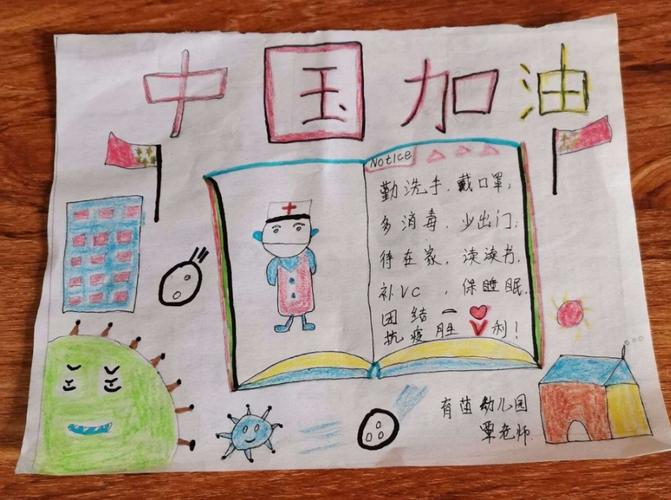 中国加油
Notice
勤洗手,戴口罩,
多消毒,少出门,
待在家,读读书,
补VC,保睡眠,
团结一
抗疫胜利!
有苗幼儿园
覃老师